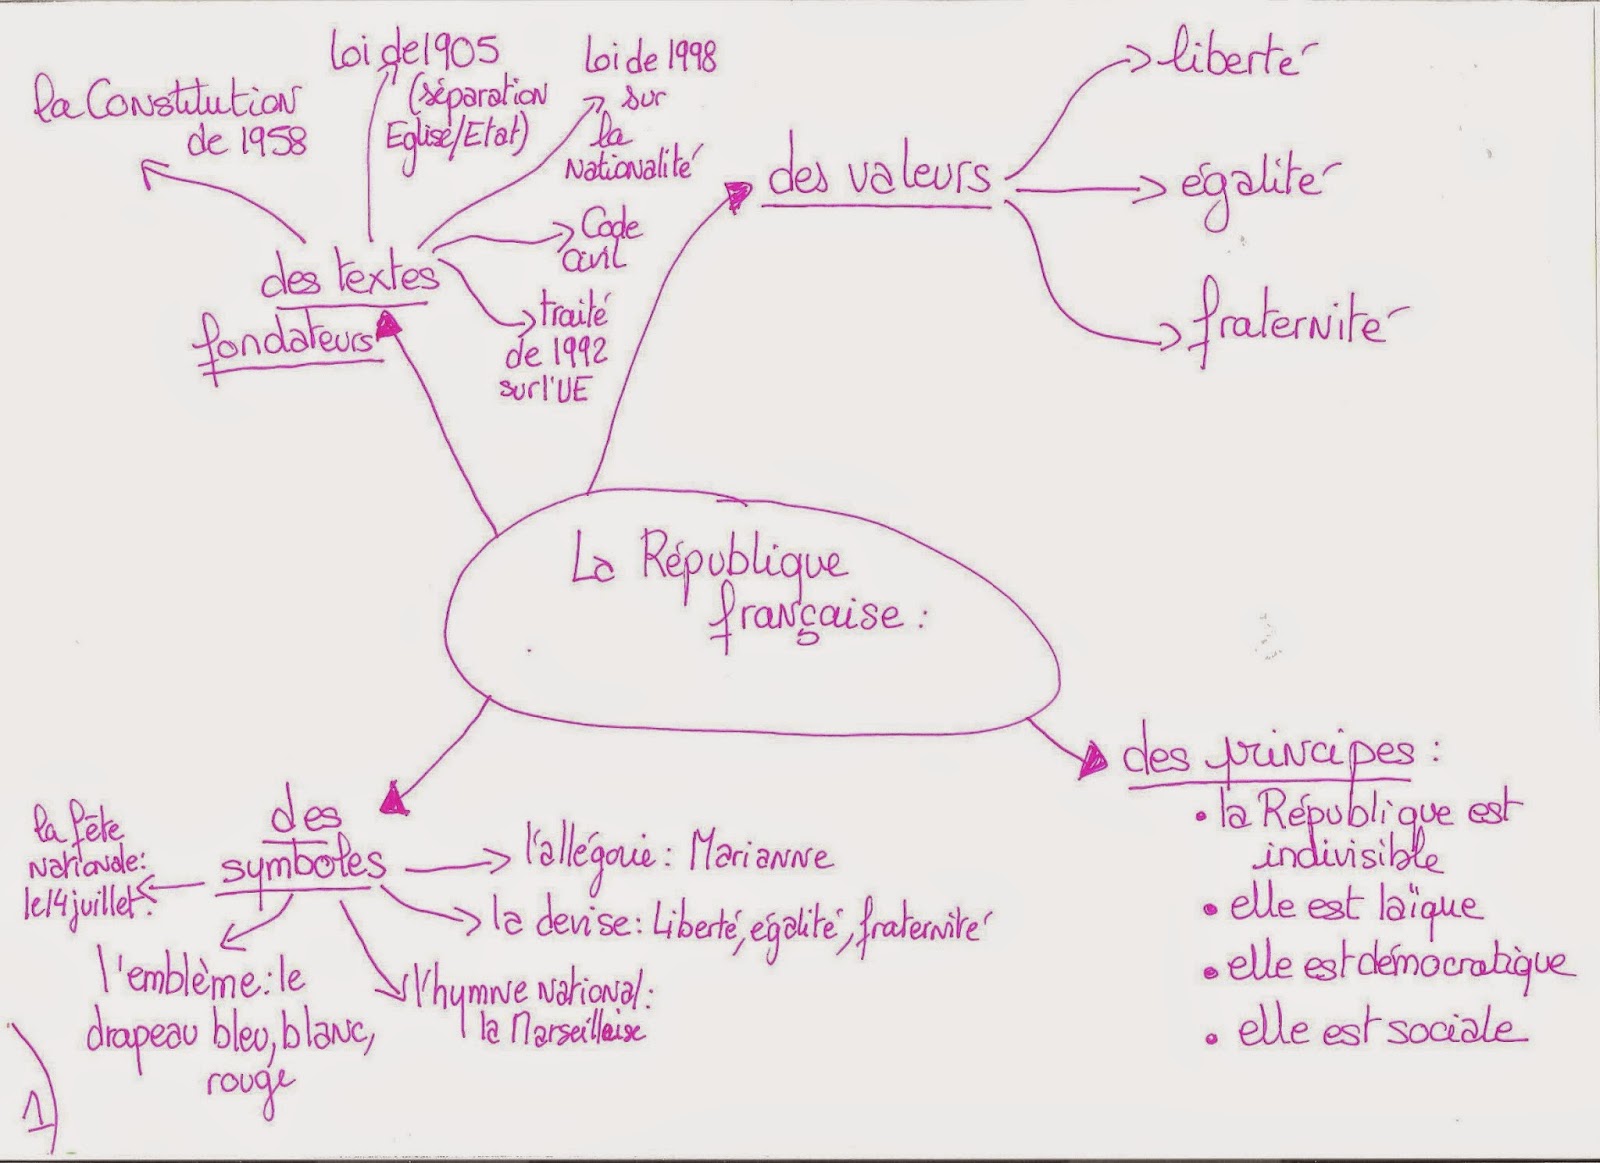 la Constitution
de 1958
Loi de 1905
(séparation
Eglise/Etat)
Loi de 1998
sur
la
Nationalité
Code
civil
traité
de 1992
sur l'UE
des textes
fondateurs
des valeurs
liberté
égalité
fraternité
La République
française :
des principes :
• la République est
indivisible
• elle est laïque
• elle est démocratique
• elle est sociale
des
symboles
la fête
Nationale :
le 14 juillet.
l'emblème : le
drapeau bleu, blanc,
rouge
l'allégorie : Marianne
la devise : Liberté, égalité, fraternité
l'hymne National :
la Marseillaise
1)